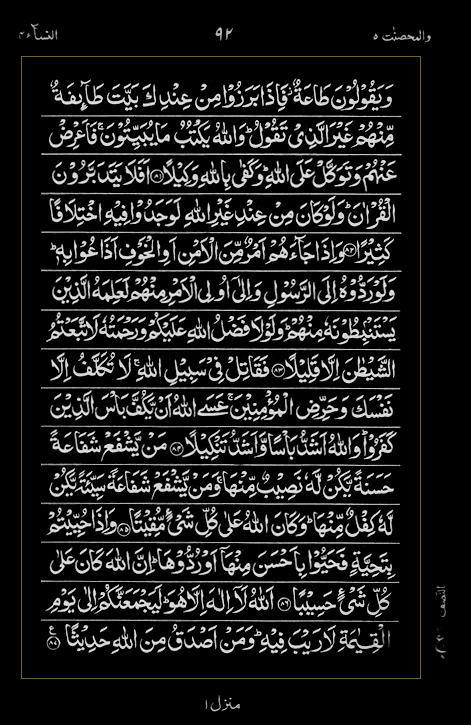 والمحصنٰت ٥
٩٢
النسآء ٤
وَيَقُوْلُوْنَ طَاعَةٌ ۫ فَاِذَا بَرَزُوْا مِنْ عِنْدِكَ بَيَّتَ طَآئِفَةٌ
مِّنْهُمْ غَيْرَ الَّذِيْ تَقُوْلُ ؕ وَاللّٰهُ يَكْتُبُ مَا يُبَيِّتُوْنَ ۚ فَاَعْرِضْ
عَنْهُمْ وَتَوَكَّلْ عَلَى اللّٰهِ ؕ وَكَفٰى بِاللّٰهِ وَكِيْلًا ﴿٨١﴾ اَفَلَا يَتَدَبَّرُوْنَ
الْقُرْاٰنَ ؕ وَلَوْ كَانَ مِنْ عِنْدِ غَيْرِ اللّٰهِ لَوَجَدُوْا فِيْهِ اخْتِلَافًا
كَثِيْرًا ﴿٨٢﴾ وَاِذَا جَآءَهُمْ اَمْرٌ مِّنَ الْاَمْنِ اَوِ الْخَوْفِ اَذَاعُوْا بِهٖ ؕ
وَلَوْ رَدُّوْهُ اِلَى الرَّسُوْلِ وَاِلٰٓى اُولِى الْاَمْرِ مِنْهُمْ لَعَلِمَهُ الَّذِيْنَ
يَسْتَنْۢبِطُوْنَهٗ مِنْهُمْ ؕ وَلَوْلَا فَضْلُ اللّٰهِ عَلَيْكُمْ وَرَحْمَتُهٗ لَاتَّبَعْتُمُ
الشَّيْطٰنَ اِلَّا قَلِيْلًا ﴿٨٣﴾ فَقَاتِلْ فِيْ سَبِيْلِ اللّٰهِ ۚ لَا تُكَلَّفُ اِلَّا
نَفْسَكَ وَحَرِّضِ الْمُؤْمِنِيْنَ ۚ عَسَى اللّٰهُ اَنْ يَّكُفَّ بَاْسَ الَّذِيْنَ
كَفَرُوْا ؕ وَاللّٰهُ اَشَدُّ بَاْسًا وَّاَشَدُّ تَنْكِيْلًا ﴿٨٤﴾ مَنْ يَّشْفَعْ شَفَاعَةً
حَسَنَةً يَّكُنْ لَّهٗ نَصِيْبٌ مِّنْهَا ۚ وَمَنْ يَّشْفَعْ شَفَاعَةً سَيِّئَةً يَّكُنْ
لَّهٗ كِفْلٌ مِّنْهَا ؕ وَكَانَ اللّٰهُ عَلٰى كُلِّ شَيْءٍ مُّقِيْتًا ﴿٨٥﴾ وَاِذَا حُيِّيْتُمْ
بِتَحِيَّةٍ فَحَيُّوْا بِاَحْسَنَ مِنْهَآ اَوْ رُدُّوْهَا ؕ اِنَّ اللّٰهَ كَانَ عَلٰى
كُلِّ شَيْءٍ حَسِيْبًا ﴿٨٦﴾ اَللّٰهُ لَآ اِلٰهَ اِلَّا هُوَ ؕ لَيَجْمَعَنَّكُمْ اِلٰى يَوْمِ
الْقِيٰمَةِ لَا رَيْبَ فِيْهِ ؕ وَمَنْ اَصْدَقُ مِنَ اللّٰهِ حَدِيْثًا ﴿٨٧﴾ ع
النصف
منزل ١